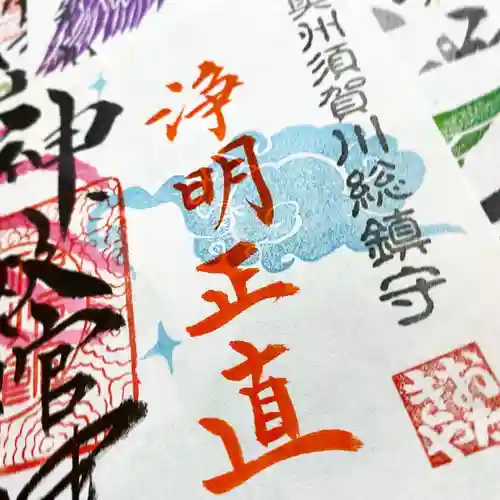 奥州須賀川総鎮守
浄明正直
神炊宮